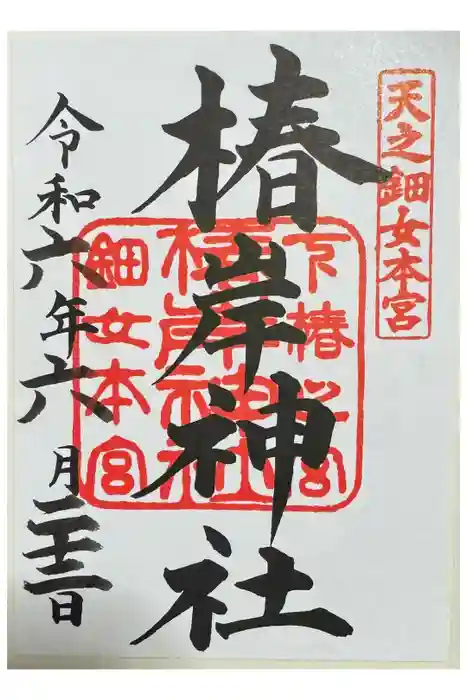 天之鈿女本宮
椿岸神社
下椿之宮
鈿女本宮
令和六年六月二十三日